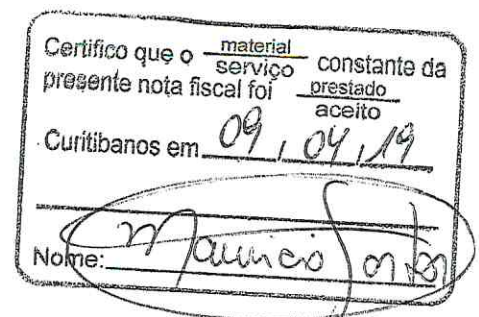 Certifico que o material serviço constante da
presente nota fiscal foi prestado aceito
Curitibanos em 09 / 04 / 19
Nome: Mauricio